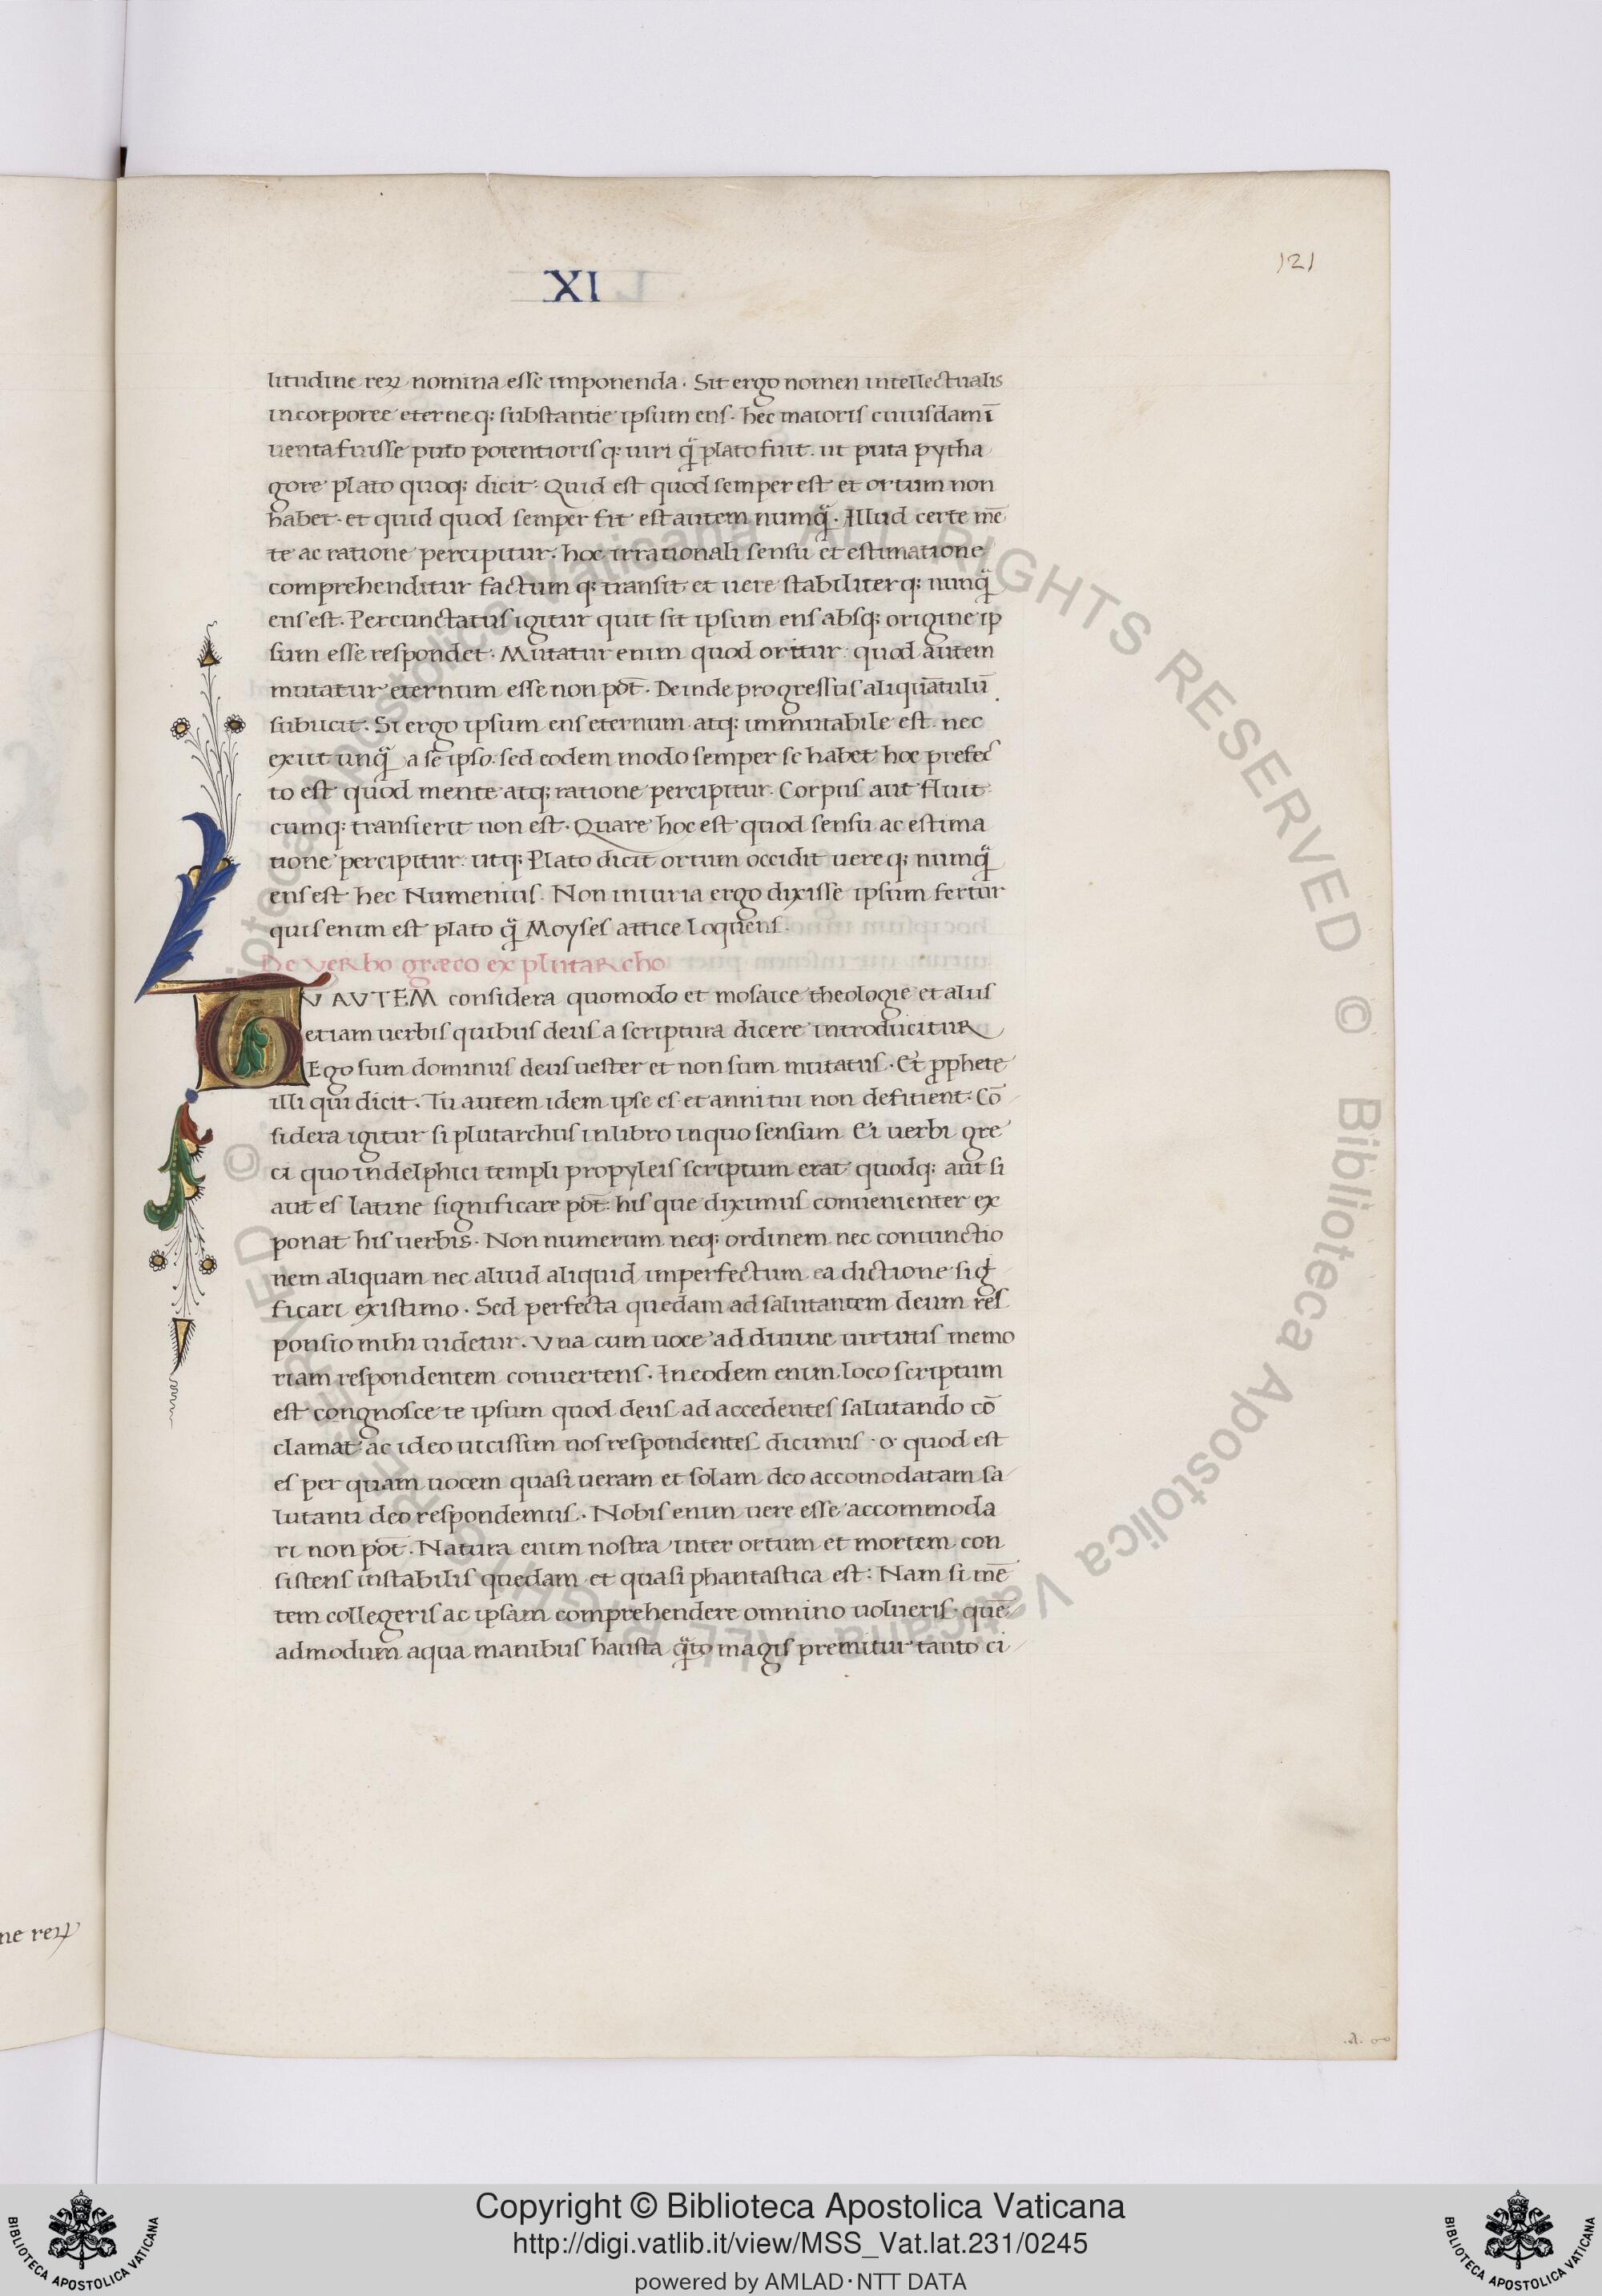 XI
121
litudine reꝝ nomina esse imponenda. Sit ergo nomen intellectualis
incorporee eterneq; substantie ipsum ens. hec maioris cuiusdam ī
uenta fuisse puto potentioris q; uiri q̃ plato fuit. ut puta pytha
gore plato quoq; dicit: Quid est quod semper est et ortum non
habet. et quid quod semper fit est autem numq̃. Illud certe mē
te ac ratione percipitur. hoc irrationali sensu et estimatione
comprehenditur factum q; transit et uere stabiliter q; nunq̃
ens est. Percunctatus igitur quit sit ipsum ens absq; origine ip
sum esse respondet. Mutatur enim quod oritur: quod autem
mutatur eternum esse non pōt. Deinde progressus aliquātulū
subiicit. Si ergo ipsum ens eternum atq; immutabile est. nec
exiit unq̃ a se ipso. sed eodem modo semper se habet hoc prefec
to est quod mente atq; ratione percipitur. Corpus aut fluit
cumq; transierit non est. Quare hoc est quod sensu ac estima
tione percipitur. utq; Plato dicit ortum occidit uere q; numq̃
ens est hec Numenius. Non iniuria ergo dixisse ipsum fertur
quis enim est plato q̃ Moyses attice loquens.
De verbo græco ex plutarcho
TU AUTEM considera quomodo et mosaice theologie et aliis
etiam uerbis quibus deus a scriptura dicere introducitur
Ego sum dominus deus uester et non sum mutatus. Et ꝓphete
illi qui dicit. Tu autem idem ipse es et anni tui non defitient. Cō
sidera igitur si plutarchus in libro in quo sensum Ei uerbi gre
ci quo in delphici templi propyleis scriptum erat quodq; aut si
aut es latine significare pōt: his que diximus conuenienter ex
ponat his uerbis. Non numerum neq; ordinem nec coniunctio
nem aliquam nec aliud aliquid imperfectum ea dictione sig
ficari existimo. Sed perfecta quedam ad salutantem deum res
ponsio mihi uidetur. Una cum uoce ad diuine uirtutis memo
riam respondentem conuertens. In eodem enim loco scriptum
est congnosce te ipsum quod deus ad accedentes salutando cō
clamat ac ideo uicissim nos respondentes dicimus o quod est
es per quam uocem quasi ueram et solam deo accomodatam sa
lutanti deo respondemus. Nobis enim uere esse accommoda
ri non pōt. Natura enim nostra inter ortum et mortem con
sistens instabilis quedam et quasi phantastica est: Nam si mē
tem collegeris ac ipsam comprehendere omnino uolueris. quē
admodum aqua manibus hausta q̃to magis premitur tanto ci
ne reꝝ
© Biblioteca Apostolica Vaticana ALL RIGHTS RESERVED
© Biblioteca Apostolica Vaticana ALL RIGHTS RESERVED
Copyright © Biblioteca Apostolica Vaticana
http://digi.vatlib.it/view/MSS_Vat.lat.231/0245
powered by AMLAD·NTT DATA
BIBLIOTECA APOSTOLICA VATICANA
BIBLIOTECA APOSTOLICA VATICANA